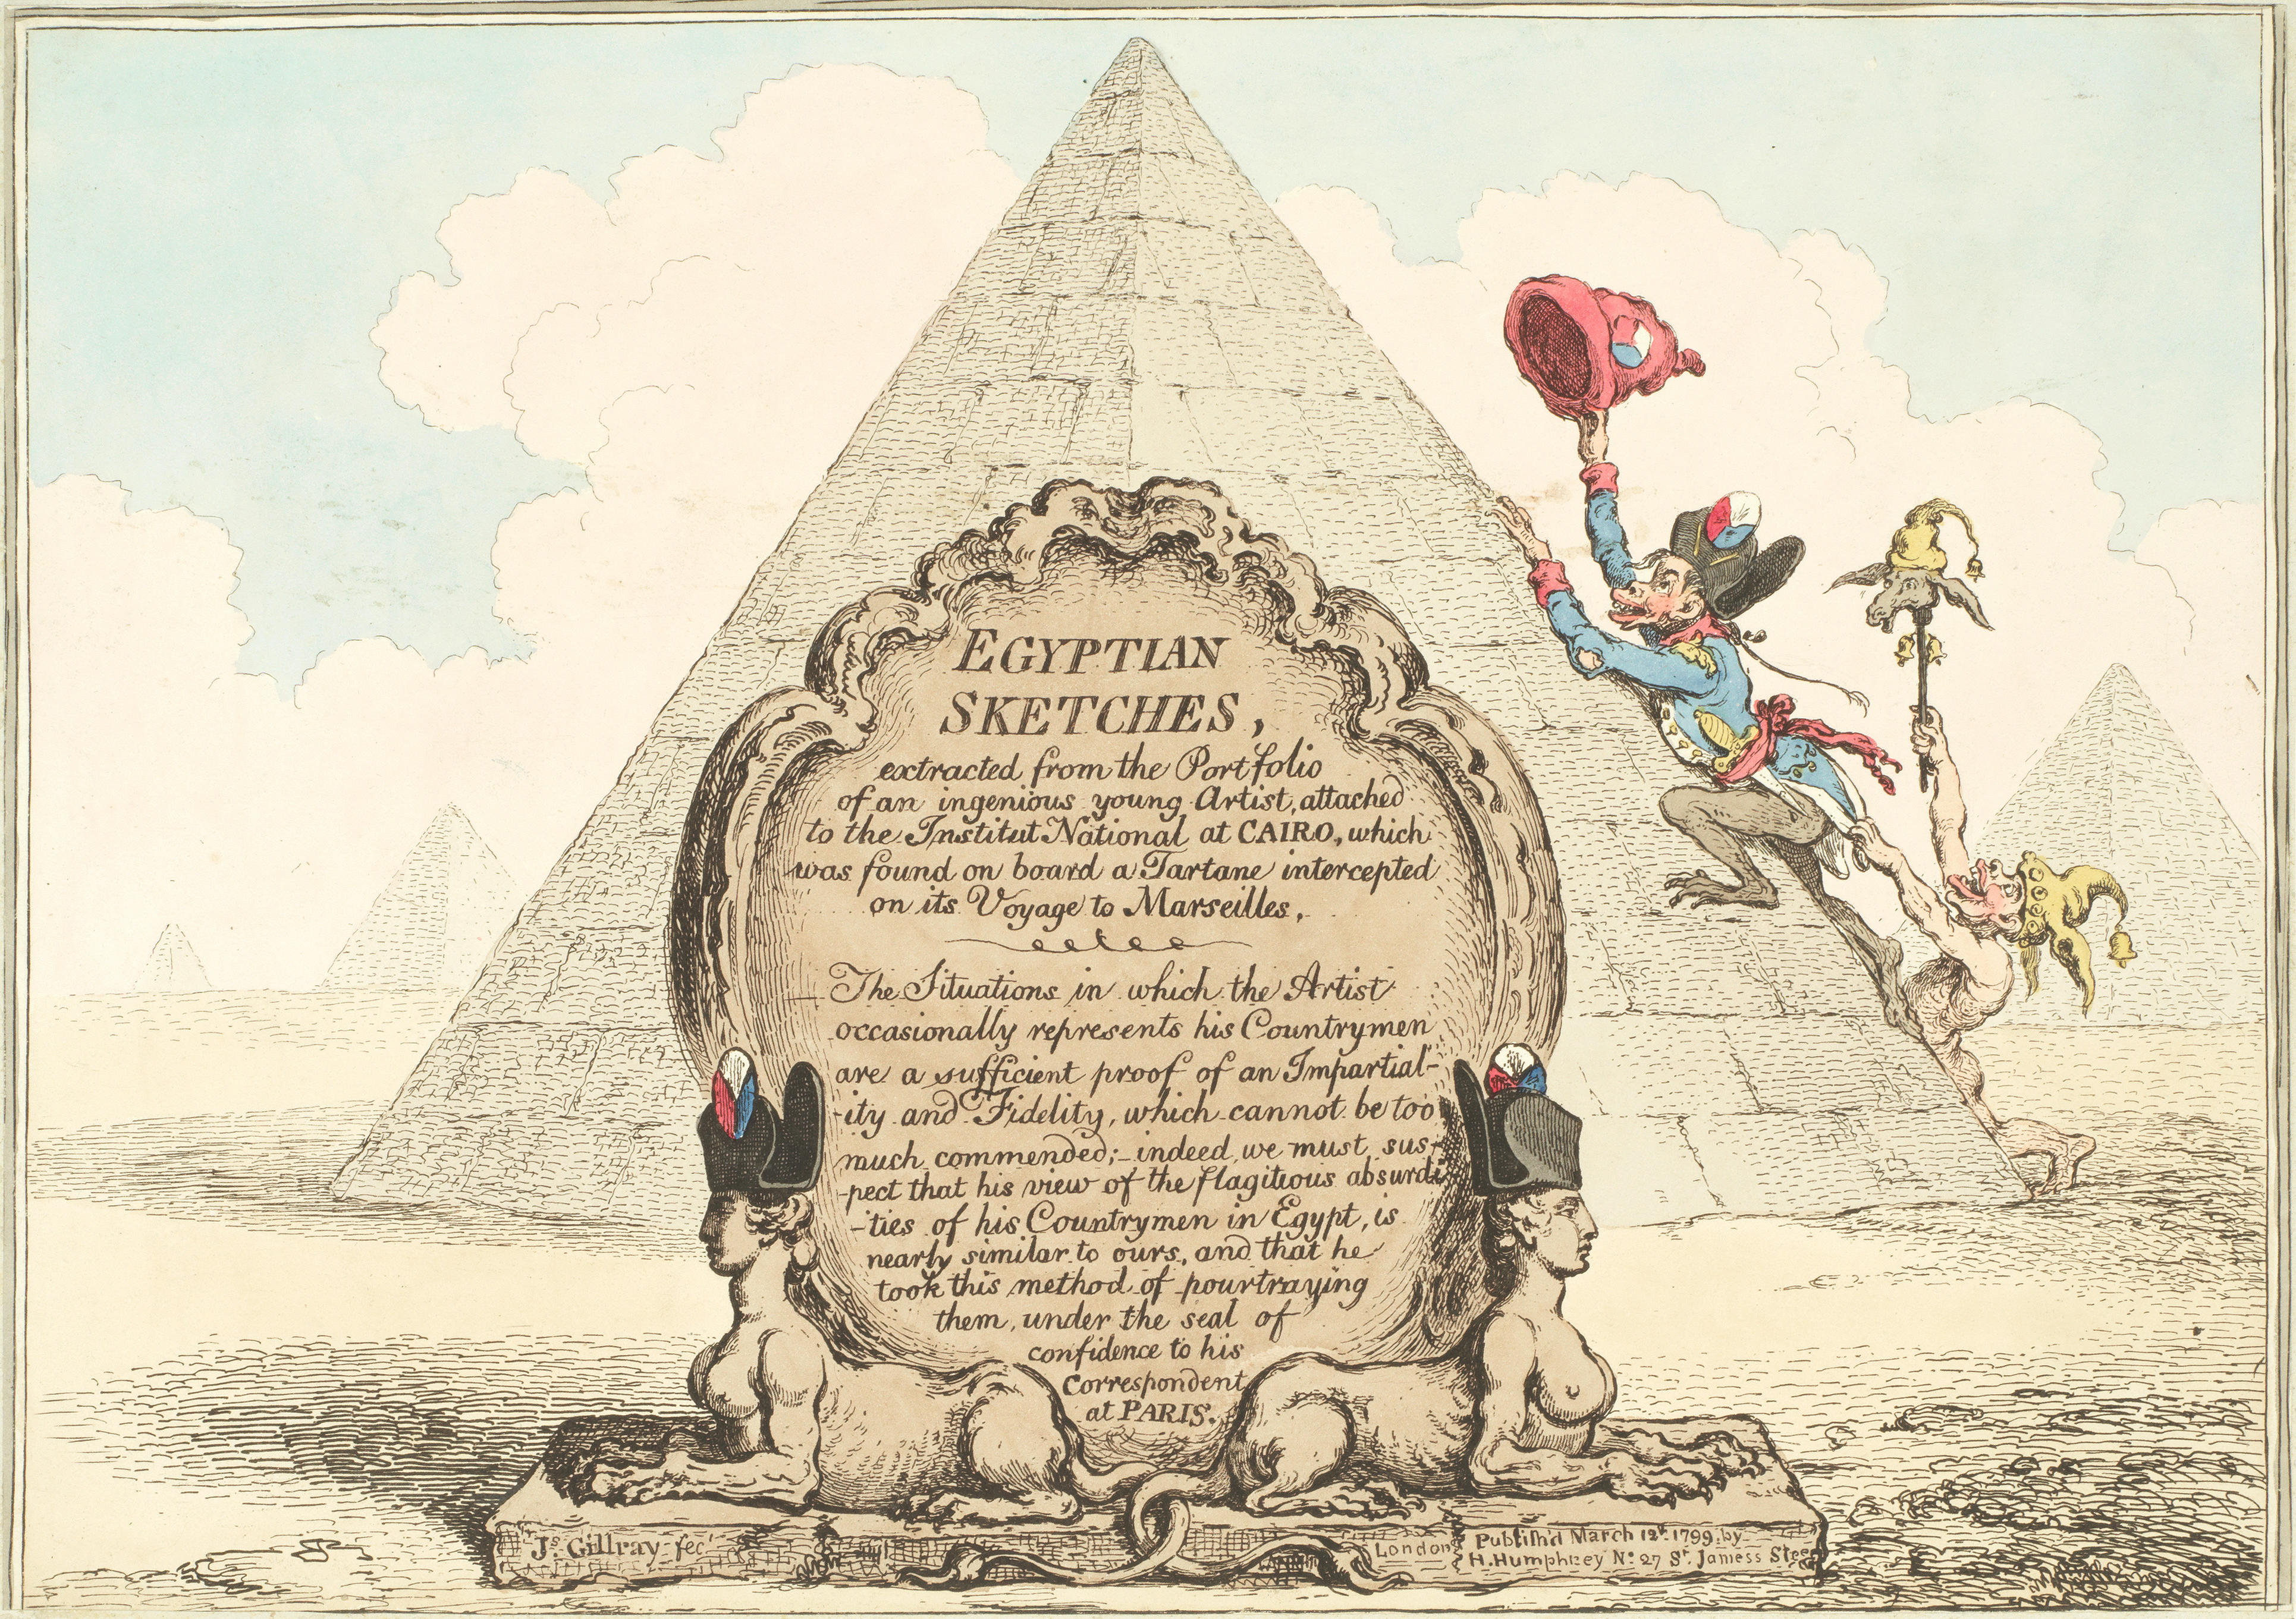 EGYPTIAN
SKETCHES,
extracted from the Portfolio
of an ingenious young Artist, attached
to the Institut National at CAIRO, which
was found on board a Tartane intercepted
on its Voyage to Marseilles.
The Situations in which the Artist
occasionally represents his Countrymen
are a sufficient proof of an Impartial-
-ity and Fidelity, which cannot be too
much commended; - indeed we must sus-
-pect that his view of the flagitious absurdi
-ties of his Countrymen in Egypt, is
nearly similar to ours, and that he
took this method of pourtraying
them, under the seal of
confidence to his
Correspondent
at PARIS.
Js. Gillray fect
London
Publish'd March 12th 1799. by
H. Humphrey No. 27 St. Jamess Street